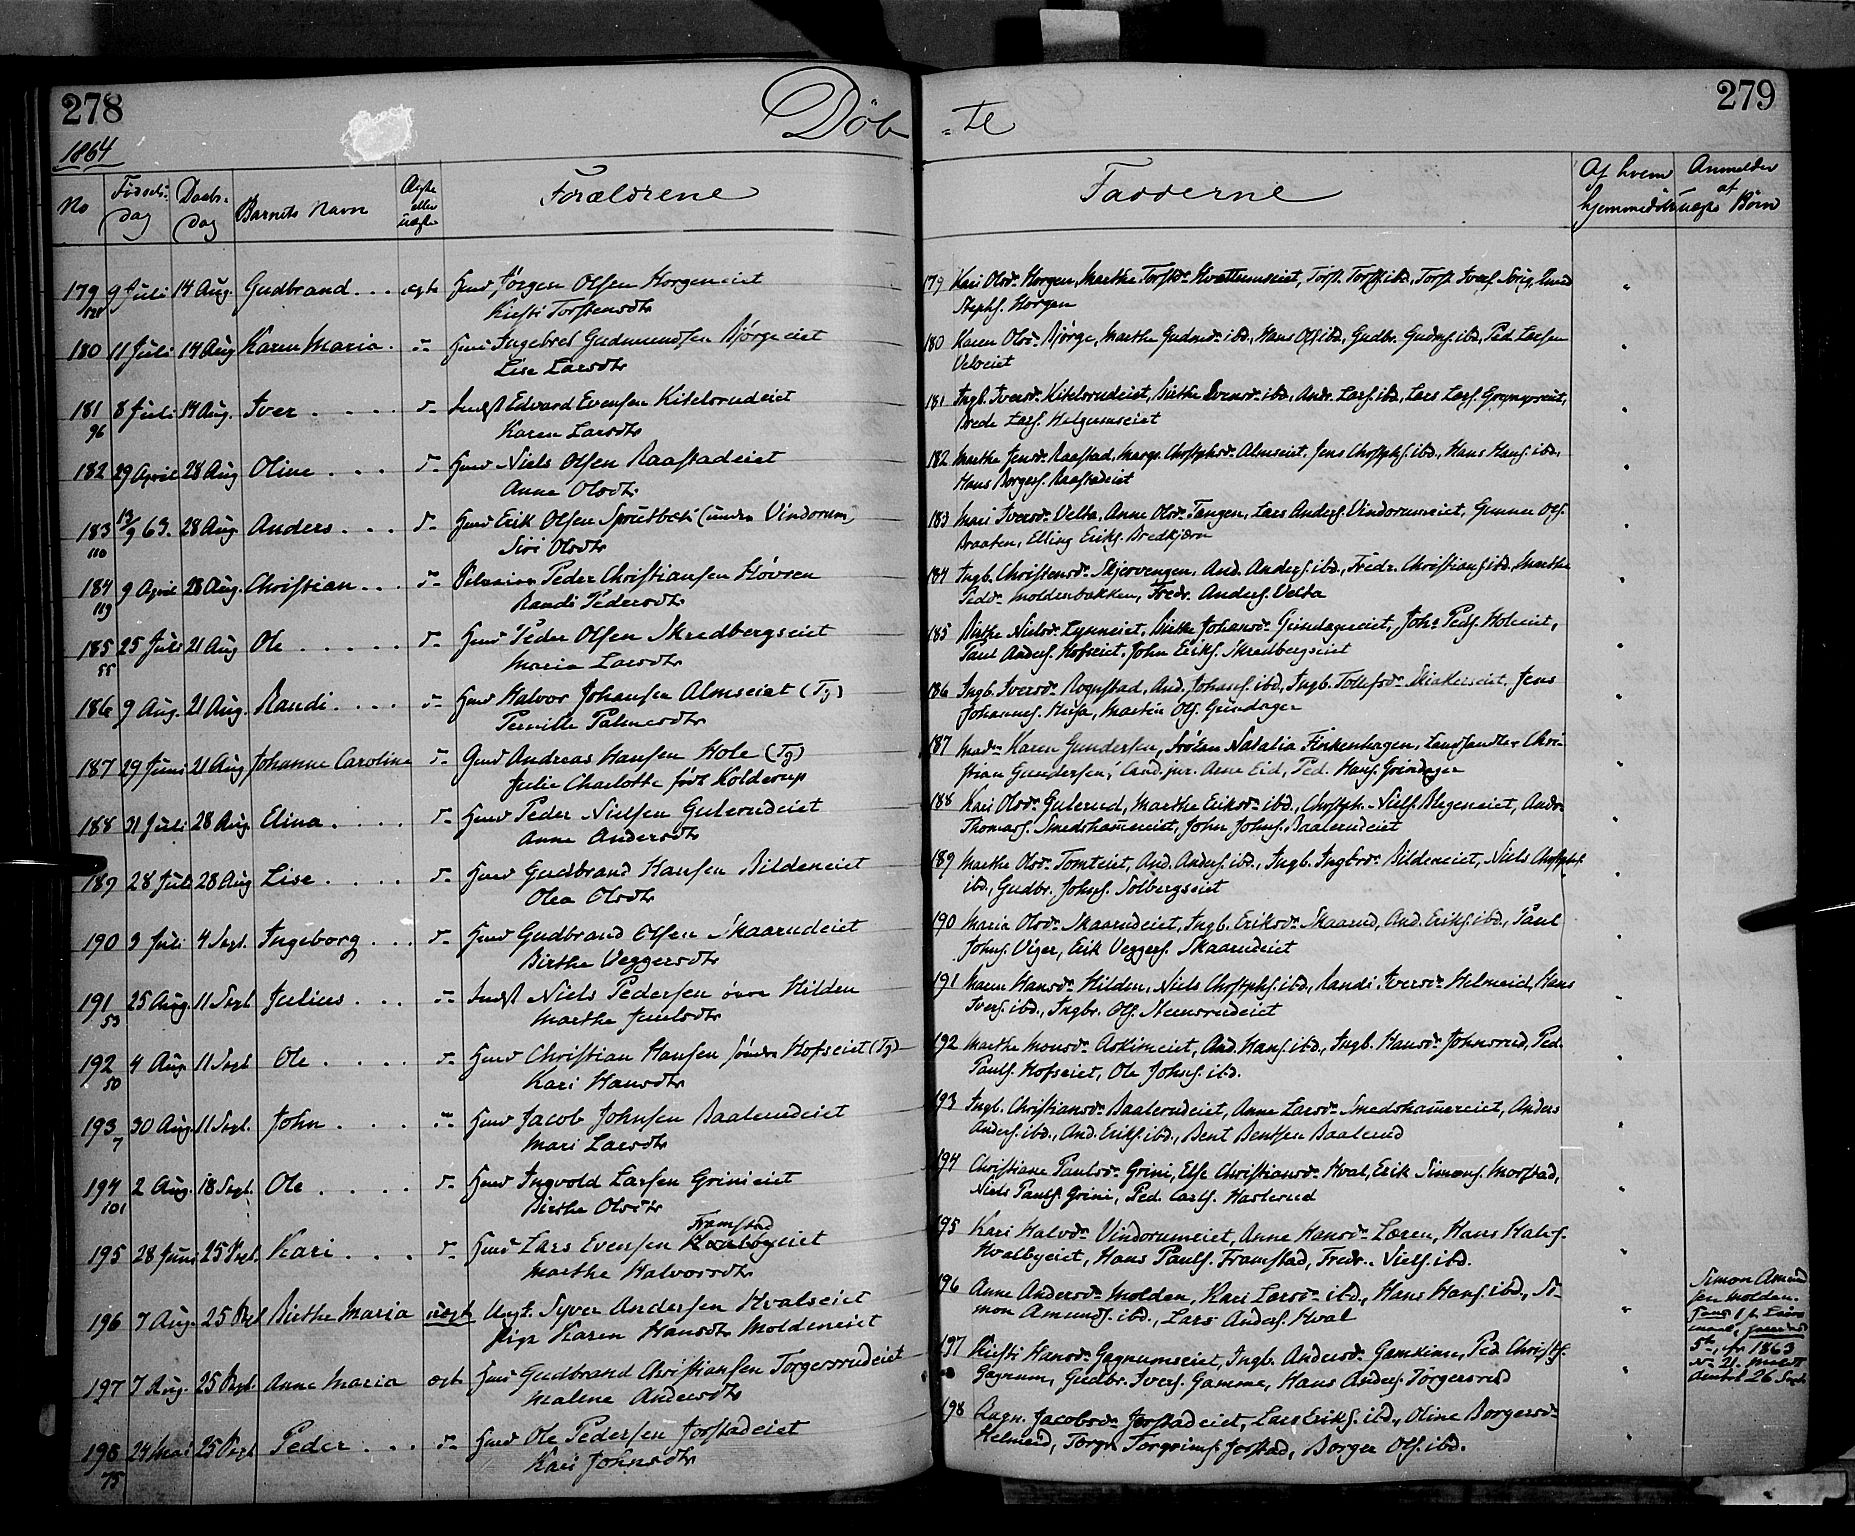 278
Døb
1864
No
Fødsels-
dag
Daabs-
dag
Barnets Navn
Ægte
eller
uægte
Forældrene
179 9 Juli 14 Aug. Gudbrand ... ægte Huusmd Jørgen Olsen Horgeneiet
Kirsti Torstensdtr
180 11 Juli 14 Aug Karen Maria. Ingebret Gudmundsen Bjørgeeiet
Lise Larsdtr
181 8 Juli 14 Aug. Iver .... Indst Edvard Evensen Kitelsrudeiet
96
Karen Larsdtr
182 29 April 28 Aug Oline .... Niels Olsen Raastadeiet
Anne Olsdtr
183 13/9 63. 28 Aug. Anders ... Erik Olsen (under Vindorum)
110
Siri Olsdtr
184 9 April 28 Aug. Christian ... Peder Christiansen Hovren
119
Randi Pedersdtr
185 25 Juli 21 Aug Ole ...... Peder Olsen Skredbergseiet
55
Maria Larsdtr
186 9 Aug. 21 Aug. Randi .... Halvor Johansen Almseiet (Tj)
Pernille Palmesdtr
187 29 Juni 21 Aug Johanne Caroline Andreas Hansen Hole (Tj)
Julie Charlotte født Kolderup
188 31 Juli 28 Aug. Elina ..... Peder Nielsen Gulerudeiet
Anne Andersdtr
189 28 Juli 28 Aug Lise ..... Gudbrand Hansen Bildeneiet
Olea Olsdtr
190 3 Juli 4 Sept. Ingeborg ... Gudbrand Olsen Skaarudeiet
Birthe Veggersdtr
191 25 Aug. 11 Sept Julius .... Indst Niels Pedersen øvre Hilden
53
Marthe Juulsdtr
192 4 Aug 11 Sept Ole ..... Christian Hansen søndre Hofseiet (Tj)
50
Kari Hansdtr
193 30 Aug. 11 Sept. John .... Jacob Johnsen Baalerudeiet
7
Mari Larsdtr
194 2 Aug. 18 Sept. Ole ..... Ingvold Larsen Grinieiet
101
Birthe Olsdtr
Framstad
195 28 Juni 25 Sept. Kari .... Lars Evensen Hvalbyeiet
Marthe Halvorsdtr
196 7 Aug. 25 Sept Birthe Maria uægte Ungk. Syver Andersen Hvalseiet
Pige Karen Hansdtr Moldeneiet
197 7 Aug. 25 Sept. Anne Maria ægte Gudbrand Christiansen Torgersrudeiet
Malene Andersdtr
198 24 Mai 25 Sept Peder ... Ole Pedersen Jorstadeiet
75
Kari Johnsdtr
279
-te
Fadderne
Af hvem
hjemmedøbt
Anmelder
af
uægte Børn
179 Kari Olsdr Horgen, Marthe Torstdr Torst. Torsts. ibd.,
Stephs. Horgen
180 Karen Olsdr Bjørge, Marthe Gudmdr ibd., Hans Ols. ibd., Gudbr. Gudms. ibd., Ped. Larsen
Velteiet
181 Ingb. Iversdr Kitelsrudeiet, Birthe Evensdr ibd., Andr. Lars. ibd., Lars Lars.
Brede Lars. Helgumseiet
182 Marthe Jensdr Raastad, Margr. Chrstphsdr Almseiet, Jens Chrstphs. ibd., Hans Hans. ibd.,
Hans Borgers. Raastadeiet
183 Mari Iversdr Velta, Anne Olsdr Tangen, Lars Anders. Vindorumseiet, Gunner Ols.
Braaten, Elling Eriks. Bredkjærn
184 Ingb. Christensdr Skjervengen, And. Anders. ibd., Fredr. Christians. ibd., Marthe
Pedsdr Moldenbakken, Fredr. Anders. Velta
185 Birthe Nielsdr Lynneiet, Birthe Johansdr Grindagereiet, Johs Peds. Holeiet,
Paul Anders. Hofseiet, John Eriks. Skredbergseiet
186 Ingb. Iversdr Rognstad, And. Johans. ibd., Ingb. Tollefsdr Jens
Johannes. Husa, Martin Ols. Grindager
187 Madm Karen Gundersen, Frøken Natalia Finkenhagen, Landhandler Chri-
stian Gundersen, Cand. jur. Arne Eid, Ped. Hans. Grindager
188 Kari Olsdr Gulerud, Marthe Eriksdr ibd., Chrstph. Niels. Andr.
Thomass. Smedshammereiet, John Johns. Baalerudeiet
189 Marthe Olsdr Tomteiet, And. Anders. ibd., Ingb. Ingbrdr Bildeneiet, Niels Chrstphs.
ibd., Gudbr. Johns. Solbergseiet
190 Maria Olsdr Skaarudeiet, Ingb. Eriksdr Skaarud, And. Eriks. ibd., Paul
Johns. Viger, Erik Veggers. Skaarudeiet
191 Maren Hansdr Hilden, Niels Chrstphs. ibd., Randi Iversdr Helmeid, Hans
Ivers. ibd., Ingbr. Ols. Nemsrudeiet
192 Marthe Monsdr Askimeiet, And. Hans. ibd., Ingb. Hansdr Johnsrud, Ped.
Pauls. Hofseiet, Ole Johns. ibd.
193 Ingb. Christiansdr Baalerudeiet, Anne Larsdr Smedshammereiet, Anders
Anders. ibd., And. Eriks. ibd., Bent Bentsen Baalerud
194 Christiane Paulsdr Grini, Else Christiansdr Hval, Erik Simons. Morstad,
Niels Pauls. Grini, Ped. Carls. Haslerud
195 Kari Halvdr Vindorumeiet, Anne Hansdr Læren, Hans Halvs.
Hvalbyeiet, Hans Pauls. Framstad, Fredr. Niels. ibd.
196 Anne Andersdr Molden, Kari Larsdr ibd., Hans Hans. ibd., Si-
mon Amunds. ibd., Lars Anders. Hval
Simon Amund
sen Molden.
1863
No 21.
26 Sept
197 Kirsti Hansdr Gagnumseiet, Ingb. Andersdr Gamkinn, Ped. Christs.
Gagnum, Gudbr. Ivers. Gamme, Hans Anders. Torgersrud
198 Ragn. Jacobsdr Jorstadeiet, Lars Eriks. ibd., Oline Borgersdr
Helmeid, Torgr Torgrims. Jorstad, Borger Ols. ibd.